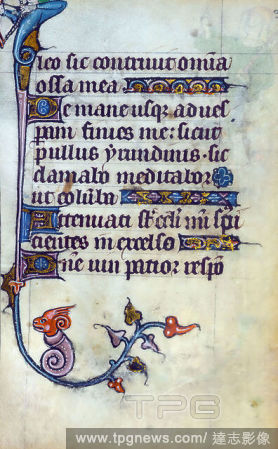 leo sic contriuit omnia
ossa mea
De mane usq; ad ues
peram finies me: sicut
pullus yrundinis sic
clamabo meditabor
ut columba
Attenuati st oculi mei suspi
cientes in excelso
Dne uim patior respo
TPG
www.tpgnews.com/ 達志影像